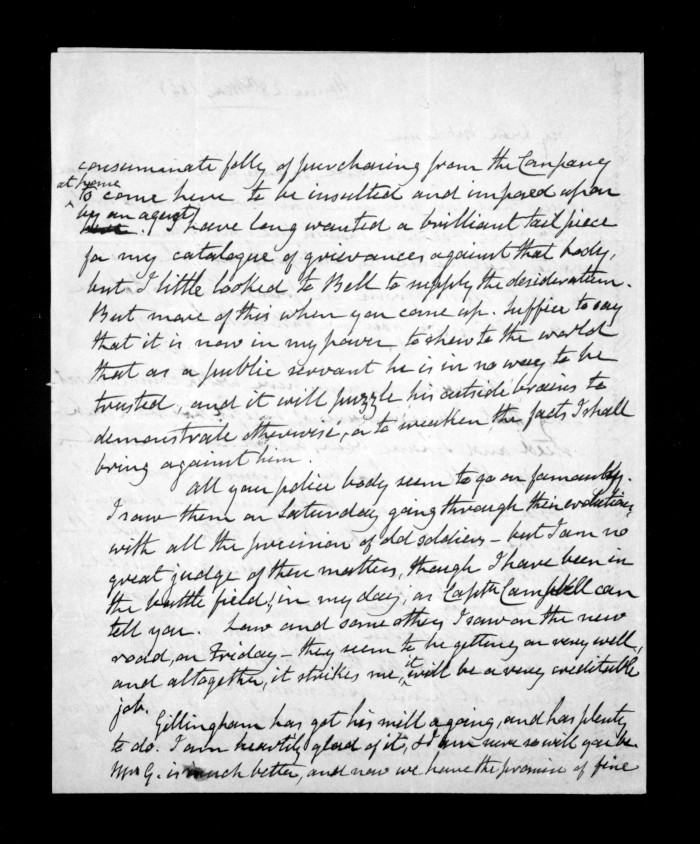 consummate folly of purchasing from the Company
at home
to come here to be insulted and imposed upon
by an agent. I have long wanted a brilliant tail piece
for my catalogue of grievances against that body,
but I little looked to Bell to supply the desideratum.
But more of this when you come up. Suffice to say
that it is now in my power to shew to the world
that as a public servant he is in no way to be
trusted, and it will puzzle his outside brains to
demonstrate otherwise, or to weaken the facts I shall
bring against him.
All your police body seem to go on famously.
I saw them on Saturday going through their evolutions
with all the precision of old soldiers – but I am no
great judge of these matters, though I have been in
the battle field, in my day, as Captn Campbell can
tell you. Law and some others I saw on the new
road, on Friday – they seem to be getting on very well,
and altogether, it strikes me, it will be a very creditable
job.
Gillingham has got his mill agoing, and has plenty
to do. I am heartily glad of it, & I am sure so will you be.
Mrs G. is much better, and now we have the promise of fine